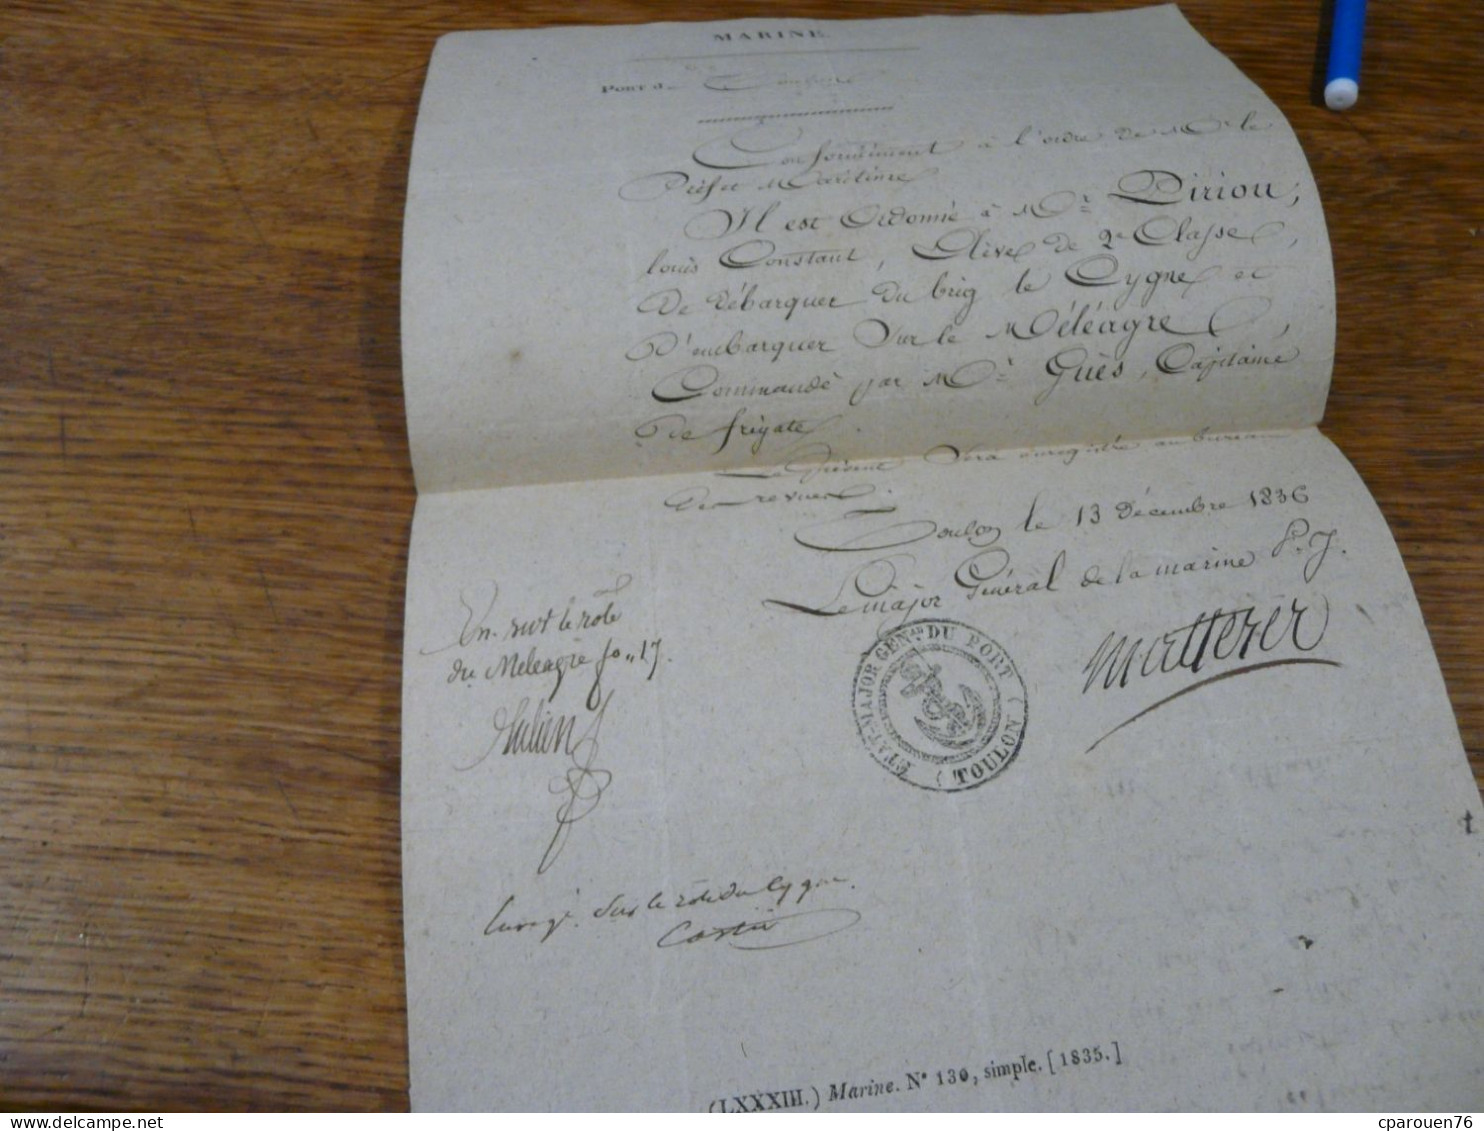 MARINE.
PORT d Toulon
Conformément à l'ordre de Mr le
Préfet Maritime
Il est Ordonné à Mr Piriou,
louis Constant, Elève de 2e Classe,
De Débarquer du brig le Cygne et
D'embarquer Sur le Méléagre,
Commandé par Mr Guès, Capitaine
De frégate.
Le présent Sera enregistré au bureau
Des revues.
Toulon le 13 Décembre 1836
Le Major Général de la marine P. J.
Matterer
ETAT-MAJOR GENal DU PORT
(TOULON)
En. sur le rôle
du Méléagre fo 17.
Julien
Sur le rôle du Cygne.
(LXXXIII.) Marine. N° 130, simple. [1835.]
t
cparouen76
delcampe.net